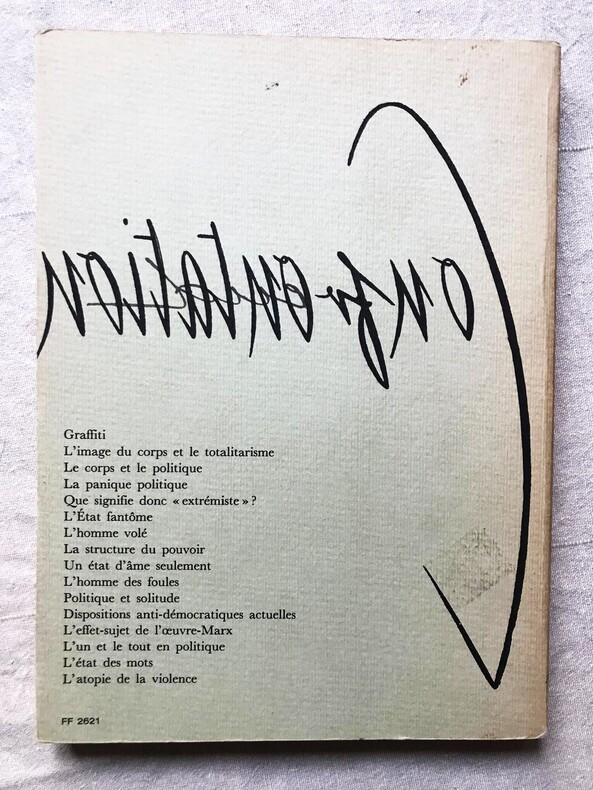 Confrontation
Graffiti
L'image du corps et le totalitarisme
Le corps et le politique
La panique politique
Que signifie donc « extrémiste » ?
L'État fantôme
L'homme volé
La structure du pouvoir
Un état d'âme seulement
L'homme des foules
Politique et solitude
Dispositions anti-démocratiques actuelles
L'effet-sujet de l'œuvre-Marx
L'un et le tout en politique
L'état des mots
L'atopie de la violence
FF 2621